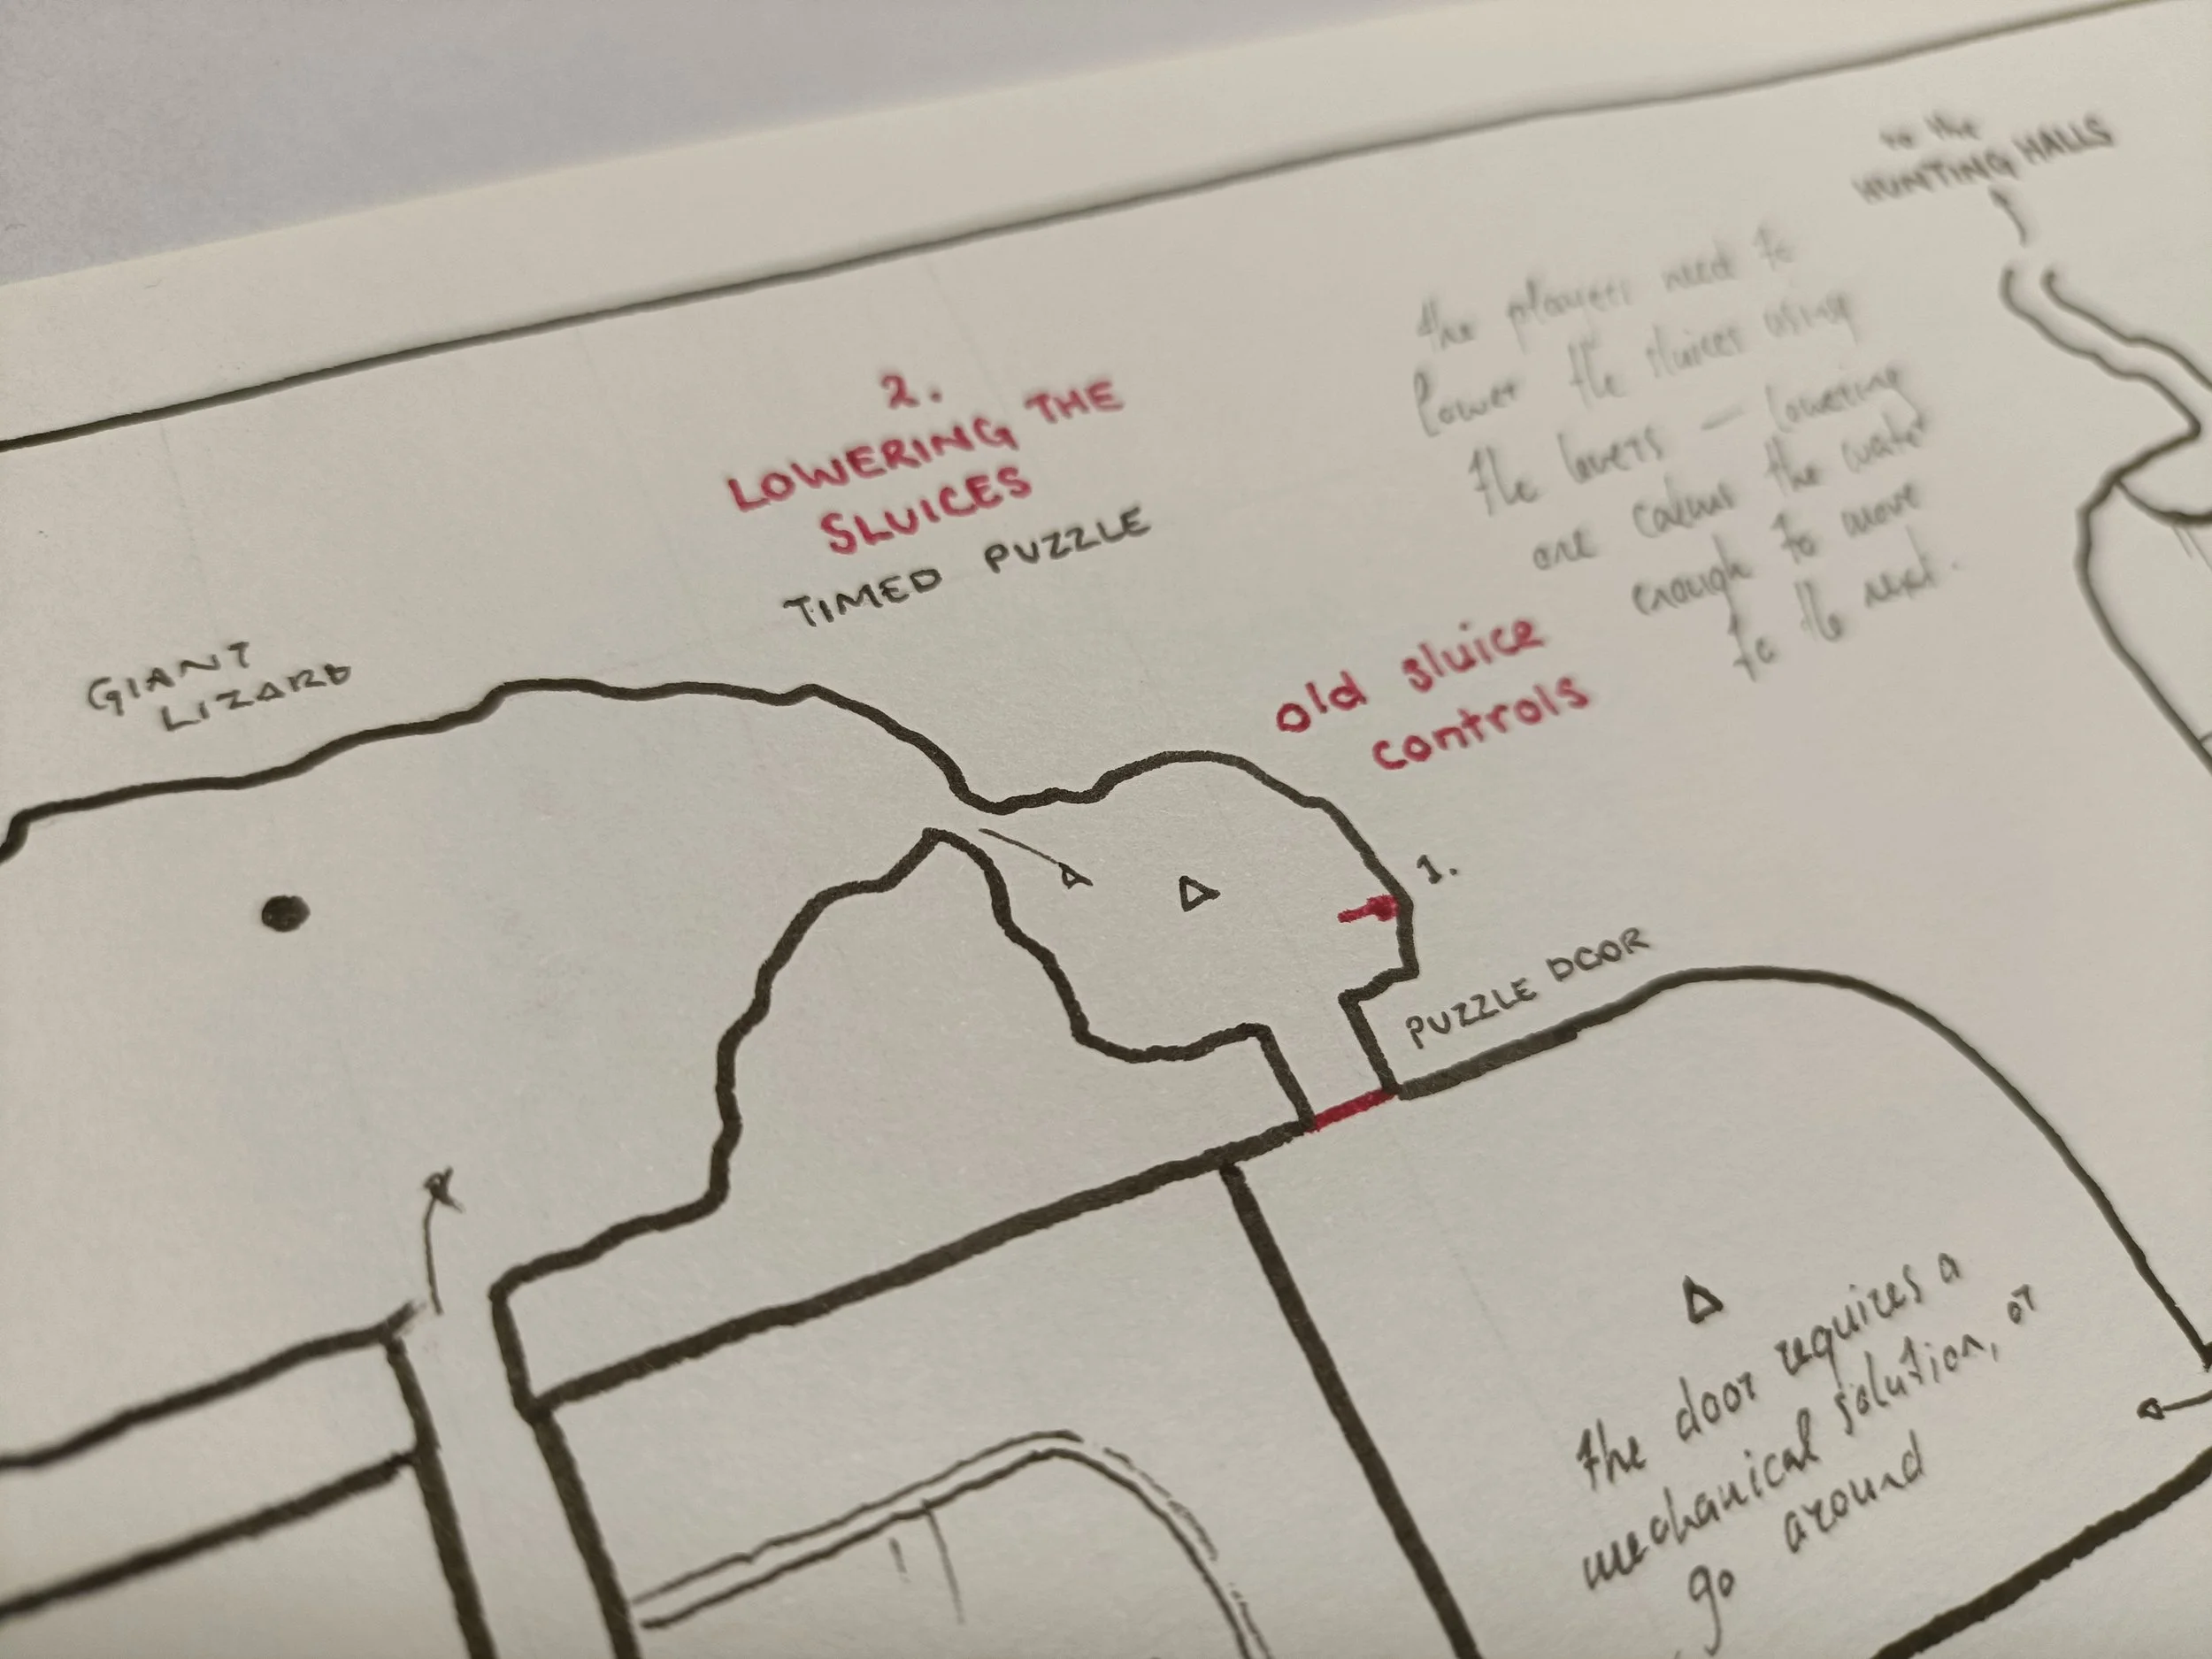 to the
HUNTING HALLS
the players need to
lower the sluices using
the levers — lowering
one calms the water
enough to move
to the next.
2.
LOWERING THE
SLUICES
TIMED PUZZLE
old sluice
controls
GIANT
LIZARD
1.
PUZZLE DOOR
the door requires a
mechanical solution, or
go around